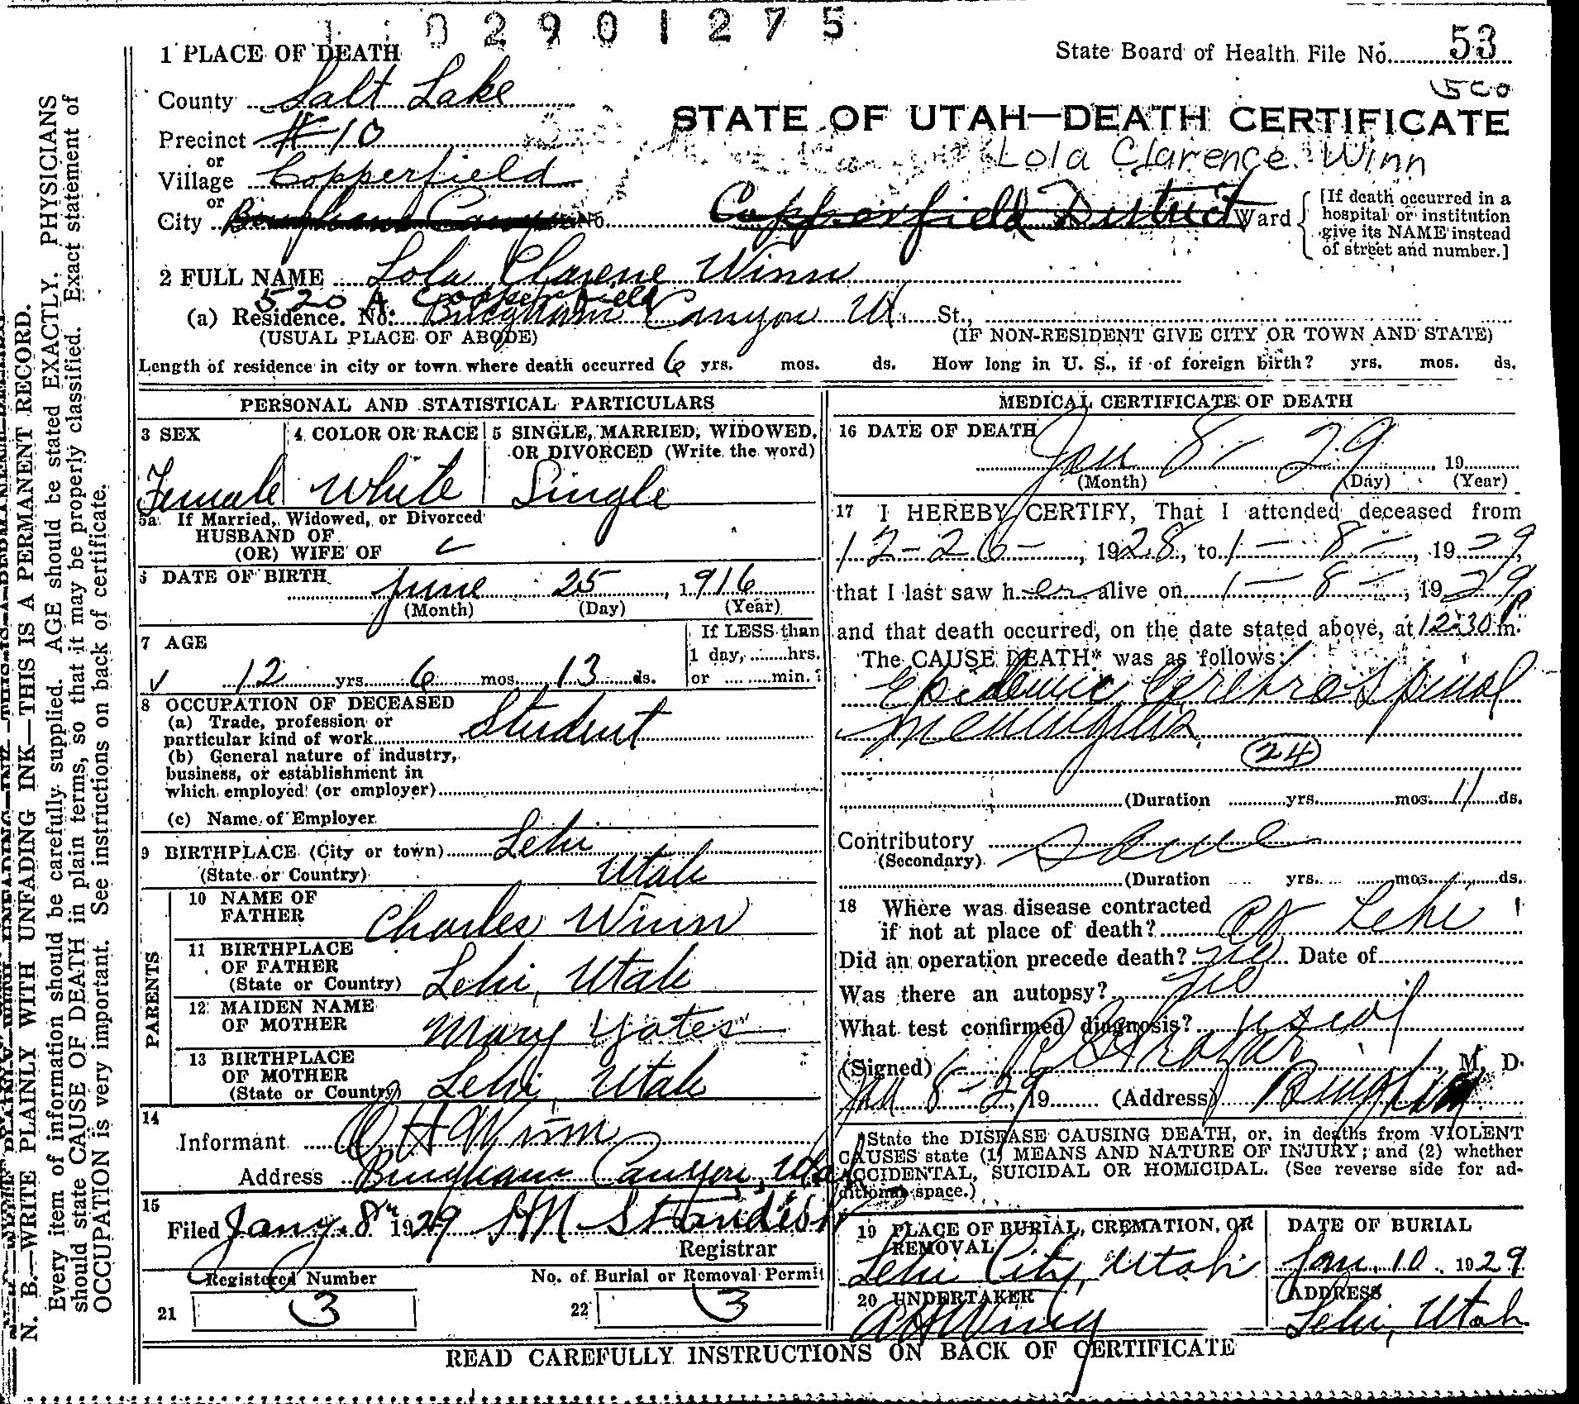 02901275
1 PLACE OF DEATH
State Board of Health File No. 53
500
County Salt Lake
STATE OF UTAH—DEATH CERTIFICATE
Precinct # 10
Lola Clarence Winn
or
Village Copperfield
or
City Bingham Canyon No. Copperfield District Ward
[If death occurred in a
hospital or institution
give its NAME instead
of street and number.]
2 FULL NAME Lola Clarene Winn
520 A. Copperfield
(a) Residence. No. Bingham Canyon Ut. St.,
(USUAL PLACE OF ABODE) (IF NON-RESIDENT GIVE CITY OR TOWN AND STATE)
Length of residence in city or town where death occurred 6 yrs. mos. ds. How long in U. S., if of foreign birth? yrs. mos. ds.
PERSONAL AND STATISTICAL PARTICULARS
3 SEX
Female
4 COLOR OR RACE
White
5 SINGLE, MARRIED, WIDOWED,
OR DIVORCED (Write the word)
Single
5a If Married, Widowed, or Divorced
HUSBAND OF
(OR) WIFE OF
6 DATE OF BIRTH June 25, 1916
(Month) (Day) (Year)
7 AGE
12 yrs. 6 mos. 13 ds.
If LESS than
1 day, ........hrs.
or ........min.?
8 OCCUPATION OF DECEASED
(a) Trade, profession or
particular kind of work Student
(b) General nature of industry,
business, or establishment in
which employed (or employer)
(c) Name of Employer
9 BIRTHPLACE (City or town) Lehi
(State or Country) Utah
PARENTS
10 NAME OF
FATHER Charles Winn
11 BIRTHPLACE
OF FATHER
(State or Country) Lehi, Utah
12 MAIDEN NAME
OF MOTHER Mary Yates
13 BIRTHPLACE
OF MOTHER
(State or Country) Lehi, Utah
14
Informant H Winn
Address Bingham Canyon, Utah
15
Filed Jany. 8" 1929 HM Standish
Registrar
Registered Number
21 3
No. of Burial or Removal Permit
22 3
MEDICAL CERTIFICATE OF DEATH
16 DATE OF DEATH
Jan 8 - 29, 19
(Month) (Day) (Year)
17 I HEREBY CERTIFY, That I attended deceased from
12-26-, 1928, to 1-8-, 1929,
that I last saw her alive on 1-8-, 1929,
and that death occurred, on the date stated above, at 12:30 P m.
The CAUSE DEATH* was as follows:
Epidemic Cerebrospinal
Meningitis
24
(Duration yrs. mos. 11 ds.
Contributory
(Secondary)
(Duration yrs. mos. ds.
18 Where was disease contracted
if not at place of death? at Lehi
Did an operation precede death? no Date of
Was there an autopsy? no
What test confirmed diagnosis? usual
(Signed) , M. D.
Jan 8-29, 19 (Address) Bingham
*State the DISEASE CAUSING DEATH, or, in deaths from VIOLENT
CAUSES state (1) MEANS AND NATURE OF INJURY; and (2) whether
ACCIDENTAL, SUICIDAL OR HOMICIDAL. (See reverse side for ad-
ditional space.)
19 PLACE OF BURIAL, CREMATION, OR
REMOVAL
Lehi City, Utah
DATE OF BURIAL
Jan. 10. 1929
20 UNDERTAKER
ADDRESS
Lehi, Utah
READ CAREFULLY INSTRUCTIONS ON BACK OF CERTIFICATE
N. B.—WRITE PLAINLY WITH UNFADING INK—THIS IS A PERMANENT RECORD.
Every item of information should be carefully supplied. AGE should be stated EXACTLY. PHYSICIANS
should state CAUSE OF DEATH in plain terms, so that it may be properly classified. Exact statement of
OCCUPATION is very important. See instructions on back of certificate.